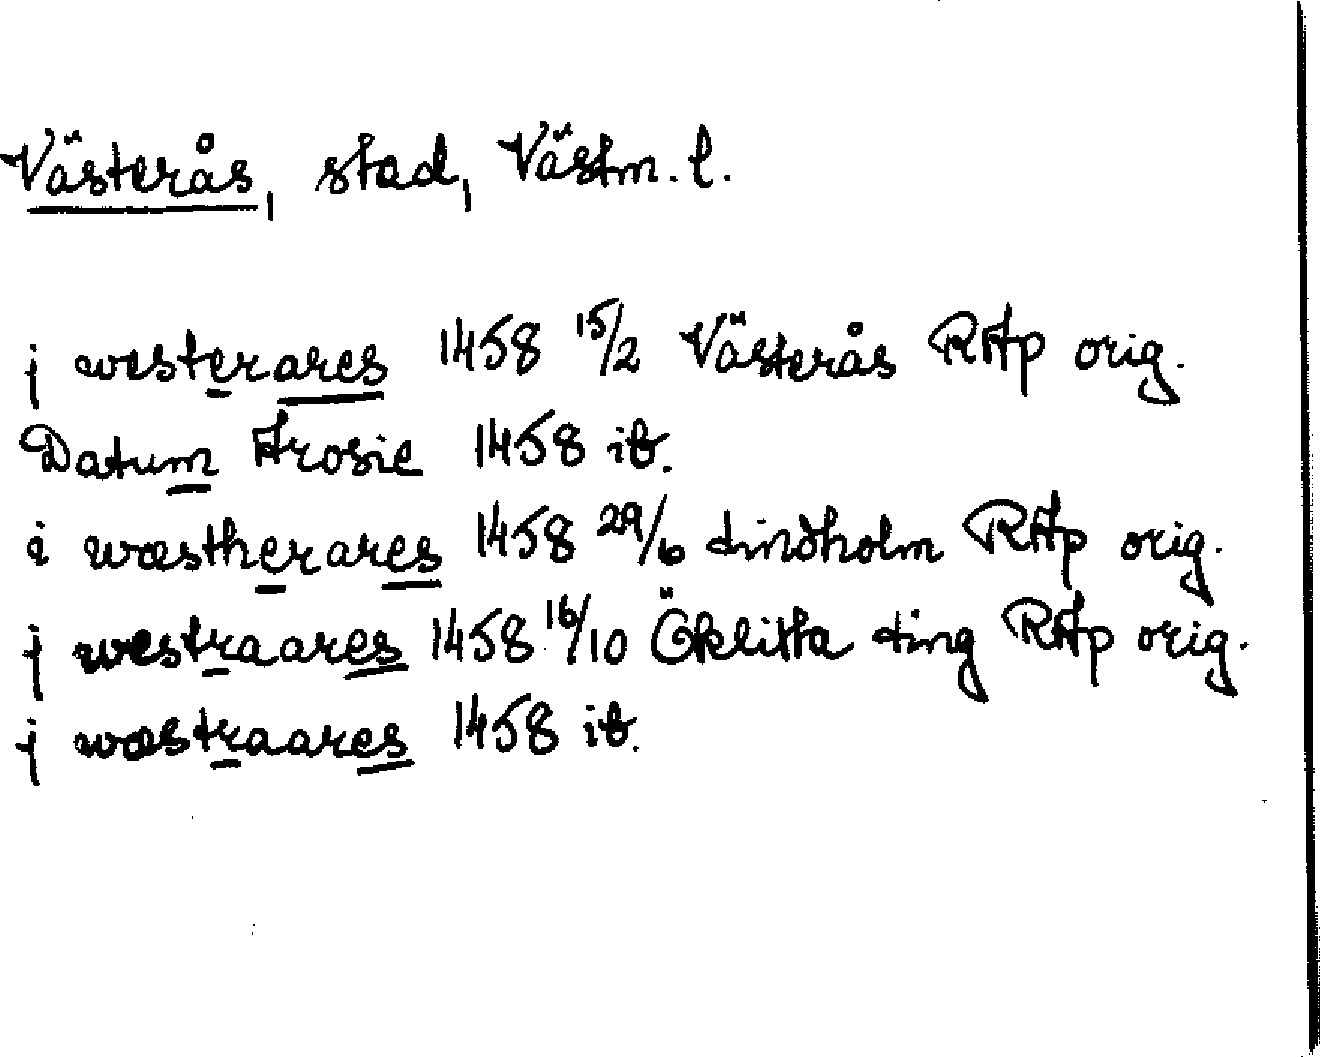 Västerås, stad, Västm. l.
j westerares 1458 15/2 Västerås RAp orig.
Datum Arosie 1458 ib.
i wæstherares 1458 29/6 Lindholm RAp orig.
j westraares 1458 16/10 Öklitta ting RAp orig.
j wæstraares 1458 ib.